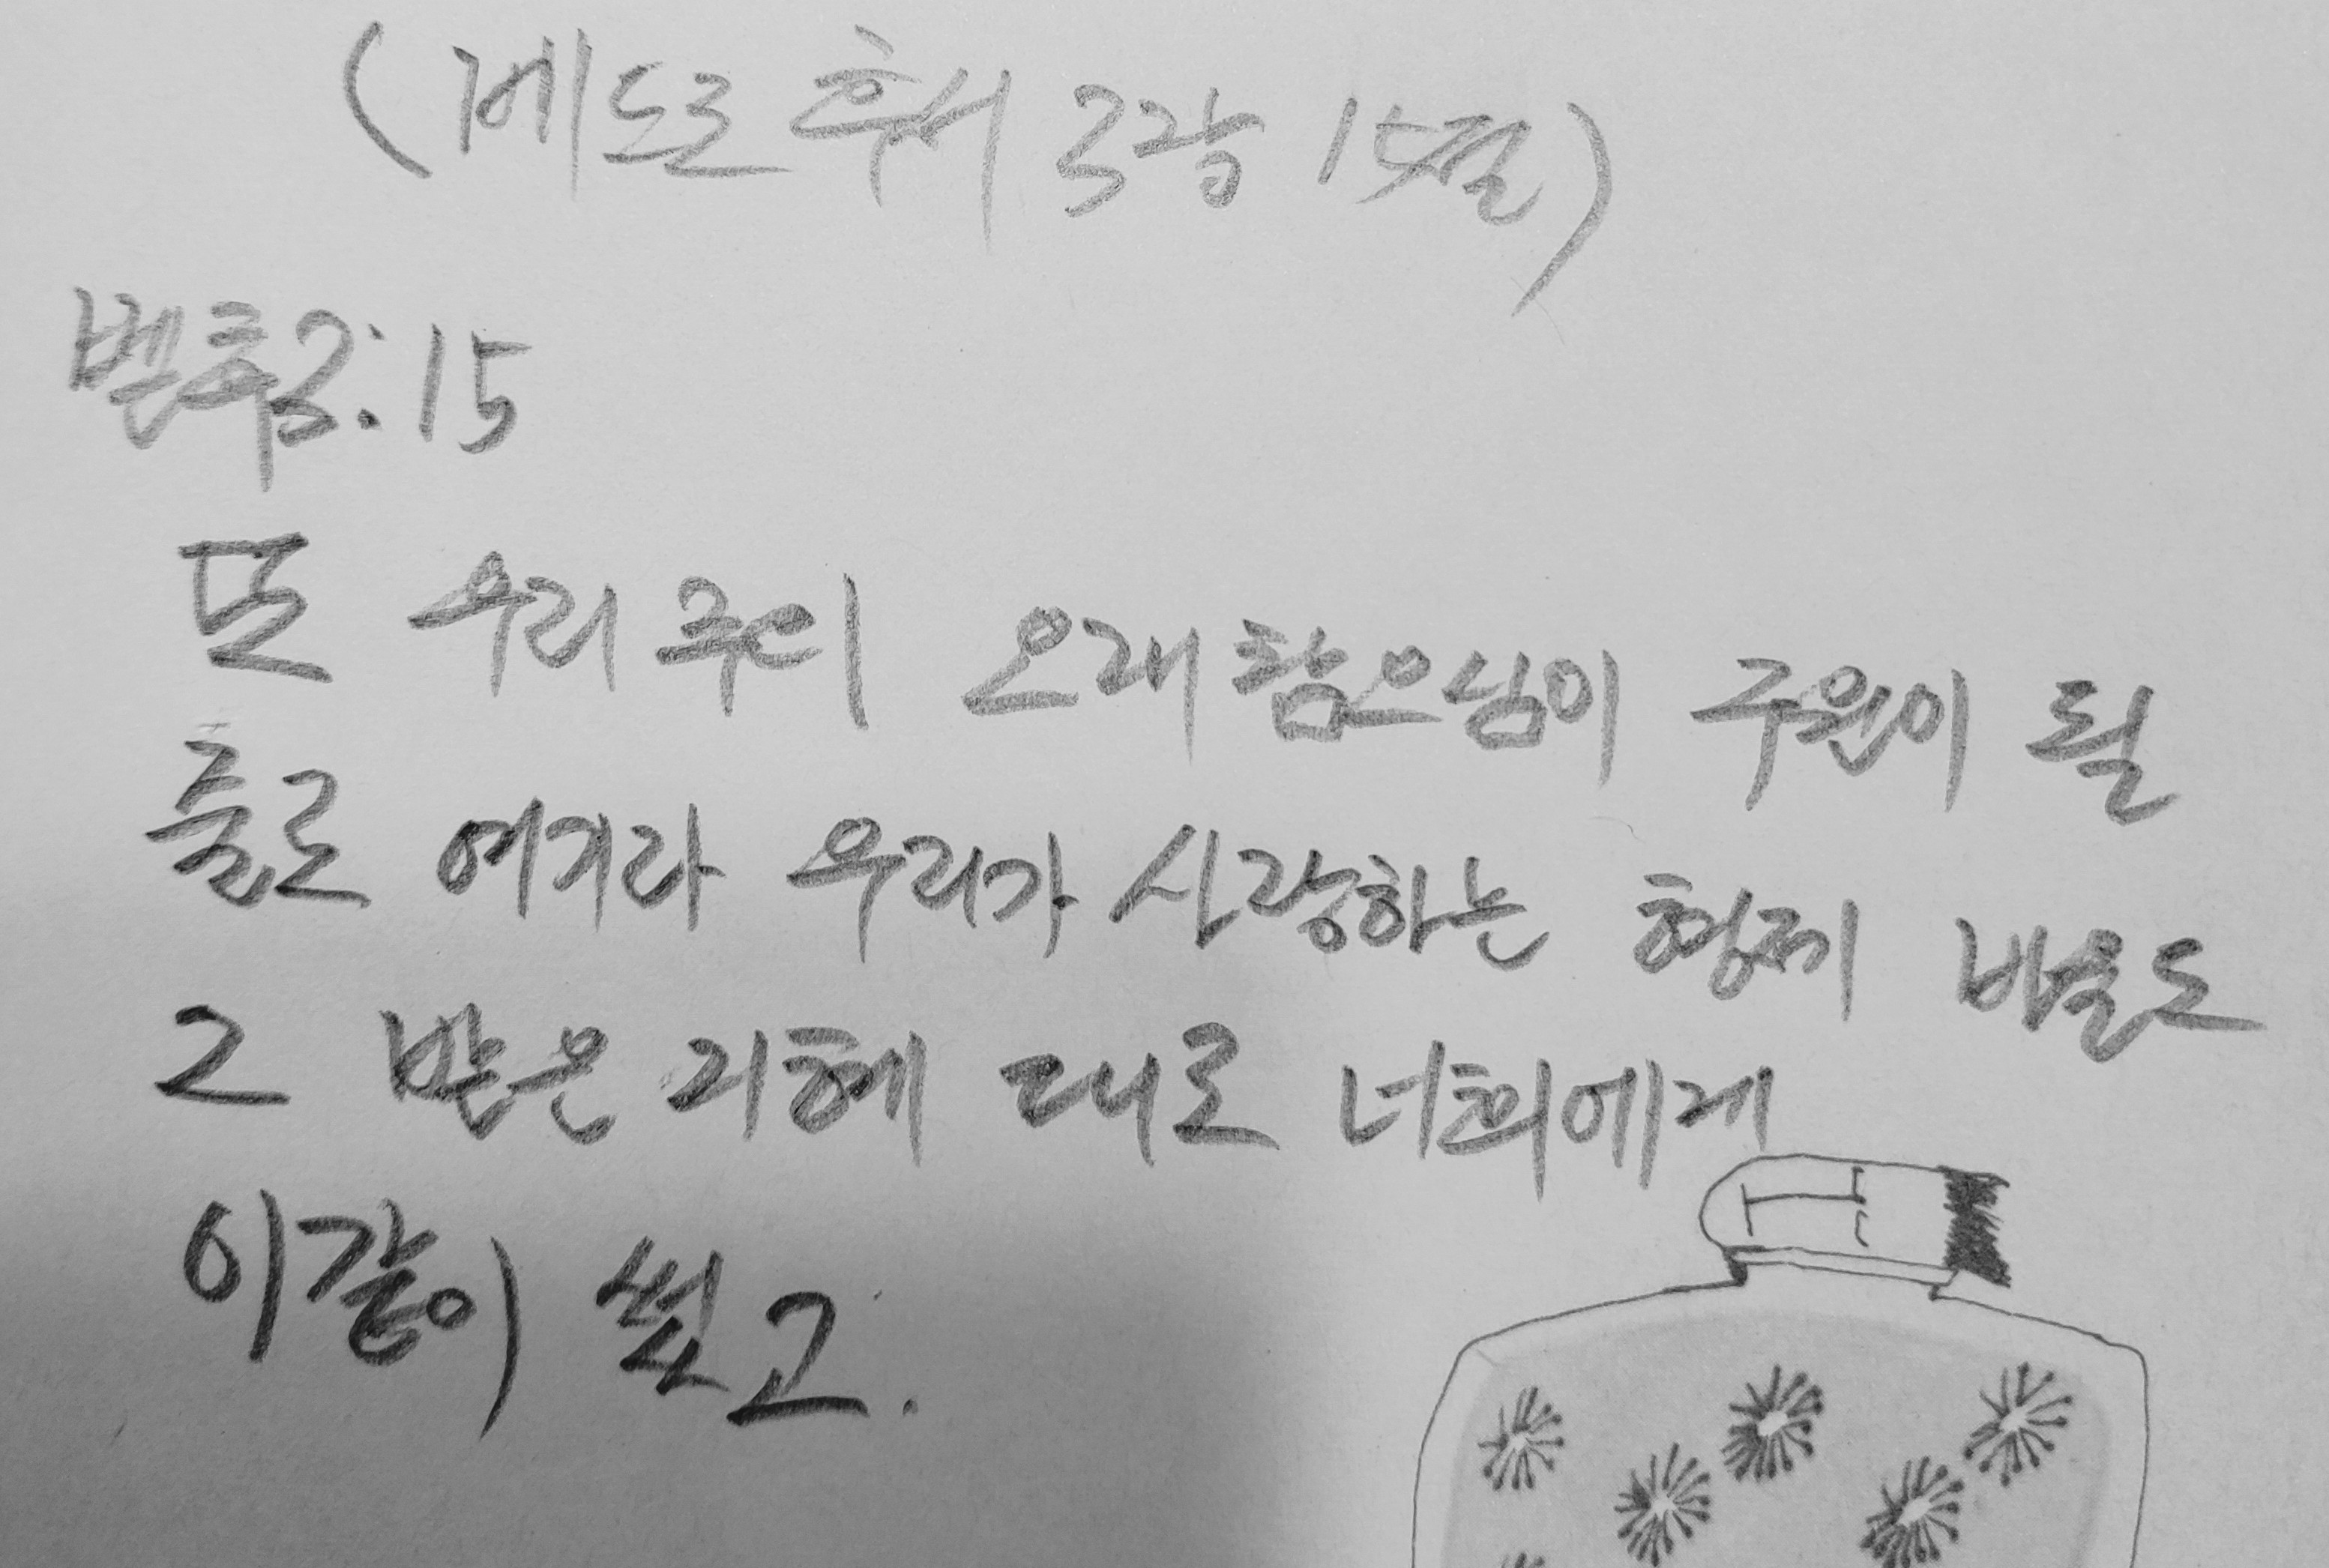 (베드로 후서 3장 15절)
벧후3:15
또 우리 주의 오래 참으심이 구원이 될
줄로 여기라 우리가 사랑하는 형제 바울도
그 받은 지혜 대로 너희에게
이같이 썼고.